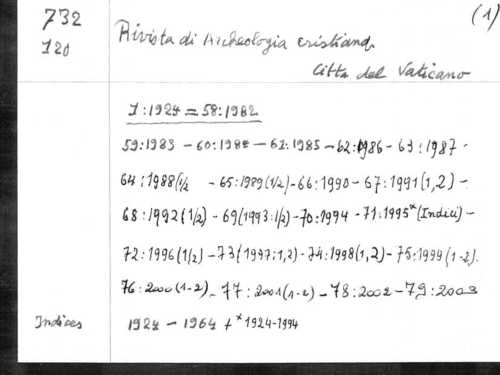 732 (1)
120 Rivista di Archeologia cristiana
Città del Vaticano
1:1924 = 58:1982
59:1983 - 60:1984 - 61:1985 - 62:1986 - 63:1987 -
64:1988(1/2 - 65:1989(1/2) - 66:1990 - 67:1991(1,2) -
68:1992(1/2) - 69(1993:1/2) - 70:1994 - 71:1995*(Indici) -
72:1996(1/2) - 73(1997:1,2) - 74:1998(1,2) - 75:1999(1-2).
76:2000(1-2) - 77:2001(1-2) - 78:2002 - 79:2003
Indices 1924 - 1964 + *1924-1994